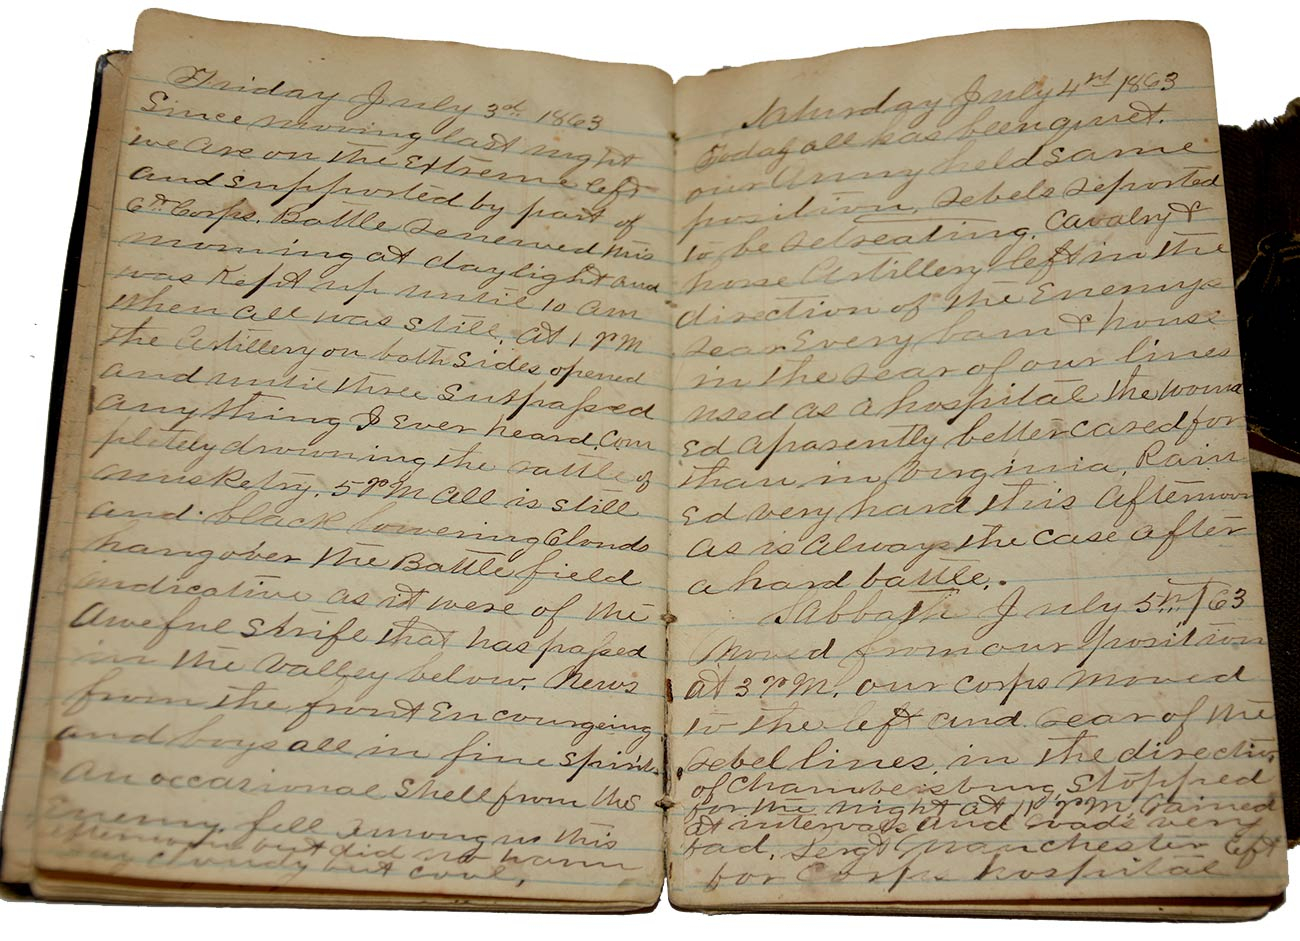 Friday July 3rd 1863
Since moving last night
we are on the Extreme left
and supported by part of
6th Corps. Battle renewed this
morning at daylight and
was Kept up until 10 am
when all was still. At 1 PM
the Artillery on both sides opened
and until three Surpassed
any thing I Ever heard. Com
pletely drowning the rattle of
musketry. 5 PM All is still
and black lowering Clouds
hang over the Battle field
indicative as it were of the
Aweful Strife that has passed
in the valley below. News
from the front Encourgeing
and boys all in fine spirits.
An occasional Shell from the
Enemy fell among us this
afternoon but did no harm
day cloudy but cool.
Saturday July 4th 1863
Today all has been quiet.
our Army held same
position. Rebels reported
to be retreating. Cavalry &
horse Artillery left in the
direction of the Enemys
rear. Every barn & house
in the rear of our lines
used as a hospital the wound
Ed aparently better cared for
than in Virginia. Rain
Ed very hard this Afternoon
as is always the case after
a hard battle.
Sabbath July 5th /63
Moved from our position
at 3 PM. our corps moved
to the left and rear of the
rebel lines in the direction
of Chambersburg Stopped
for the night at 11 PM. rained
at intervals and roads very
bad. Sergt Manchester left
for Corps hospital